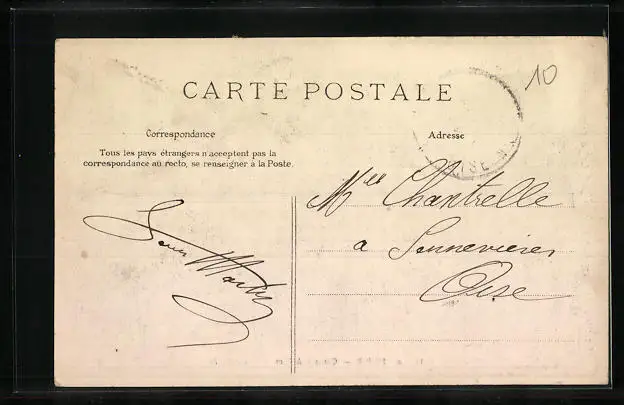 10
CARTE POSTALE
Correspondance
Adresse
Tous les pays étrangers n'acceptent pas la
correspondance au recto, se renseigner à la Poste.
Mlle Chantrelle
a Sennevieres
Oise
OISE